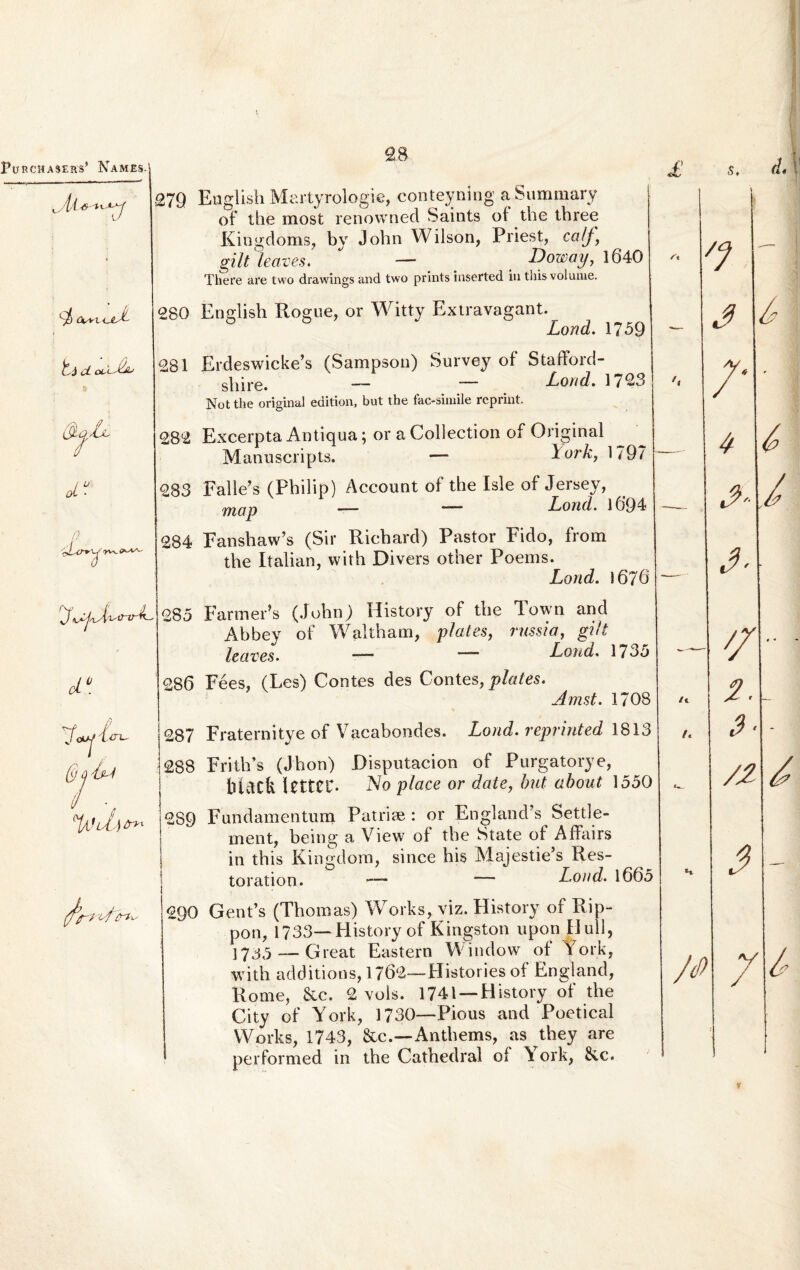 28
PURCHASERS' NAMES.
£ s. d.
279 English Martyrologie, conteyning a Summary
of the most renowned Saints of the three
Kingdoms, by John Wilson, Priest, calf,
gilt leaves. — Doway, 1640
There are two drawings and two prints inserted in this volume.
280 English Rogue, or Witty Extravagant.
Lond. 1759
3 6
281 Erdeswicke's (Sampson) Survey of Stafford-
shire. — — Lond. 1723
Not the original edition, but the fac-simile reprint.
7.
282 Excerpta Antiqua; or a Collection of Original
Manuscripts. — York, 1797
4 6
do.
283 Falle's (Philip) Account of the Isle of Jersey,
map — — Lond. 1694
3. 6
Longman
284 Fanshaw's (Sir Richard) Pastor Fido, from
the Italian, with Divers other Poems.
Lond. 1676
3.
285 Farmer's (John) History of the Town and
Abbey of Waltham, plates, russia, gilt
leaves. — — Lond. 1735
17
do.
286 Fées, (Les) Contes des Contes, plates.
Amst. 1708
2. –
Taylor
287 Fraternitye of Vacabondes. Lond. reprinted 1813
3. -
288 Frith's (Jhon) Disputacion of Purgatorye,
black letter. No place or date, but about 1550
12 6
Wilson
289 Fundamentum Patriæ: or England's Settle-
ment, being a View of the State of Affairs
in this Kingdom, since his Majestie's Res-
toration. — — Lond. 1665
3 –
290 Gent's (Thomas) Works, viz. History of Rip-
pon, 1733—History of Kingston upon Hull,
1735 — Great Eastern Window of York,
with additions, 1762—Histories of England,
Rome, &c. 2 vols. 1741—History of the
City of York, 1730—Pious and Poetical
Works, 1743, &c.—Anthems, as they are
performed in the Cathedral of York, &c.
10 7 6